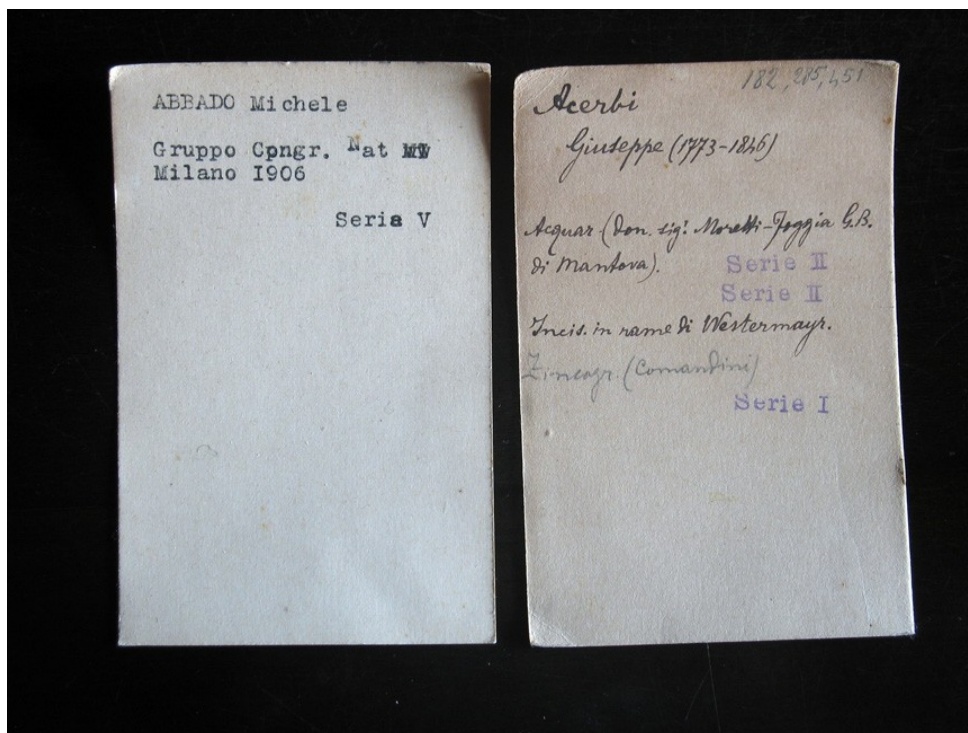 ABBADO Michele
Gruppo Cpngr. Nat
Milano I906
Serie V
182, 285, 451
Acerbi
Giuseppe (1773-1846)
Acquar. (Don. sig. Moretti-Foggia G.B.
di Mantova).
Serie II
Serie II
Incis. in rame di Westermayr.
Zincogr. (Comandini)
Serie I